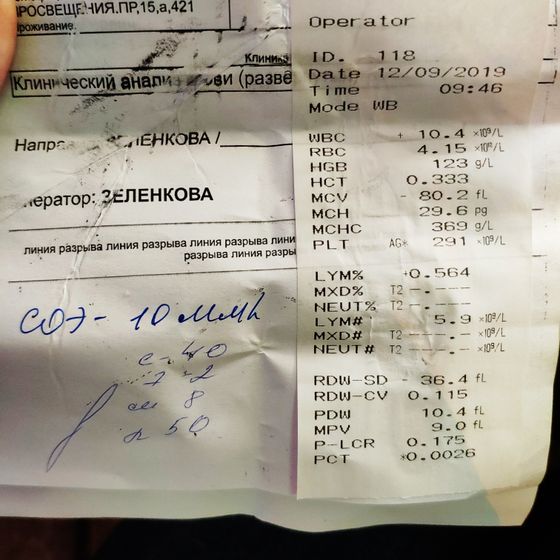 РОСВЕЩЕНИЯ.ПР,15,а,421
роживание
Клинич
Клинический анализ крови (развё
Напра ЗЕЛЕНКОВА /
ператор: ЗЕЛЕНКОВА
линия разрыва линия разрыва линия разрыва линия
разрыва линия разрыв
СОЭ - 10 мм/ч
с - 40
э - 2
м 8
л 50
Operator
ID. 118
Date 12/09/2019
Time 09:46
Mode WB
WBC + 10.4 ×10⁹/L
RBC 4.15 ×10¹²/L
HGB 123 g/L
HCT 0.333
MCV - 80.2 fL
MCH 29.6 pg
MCHC 369 g/L
PLT AG* 291 ×10⁹/L
LYM% +0.564
MXD% T2 --.---
NEUT% T2 --.---
LYM# 5.9 ×10⁹/L
MXD# T2 ---.- ×10⁹/L
NEUT# T2 ---.- ×10⁹/L
RDW-SD - 36.4 fL
RDW-CV 0.115
PDW 10.4 fL
MPV 9.0 fL
P-LCR 0.175
PCT *0.0026